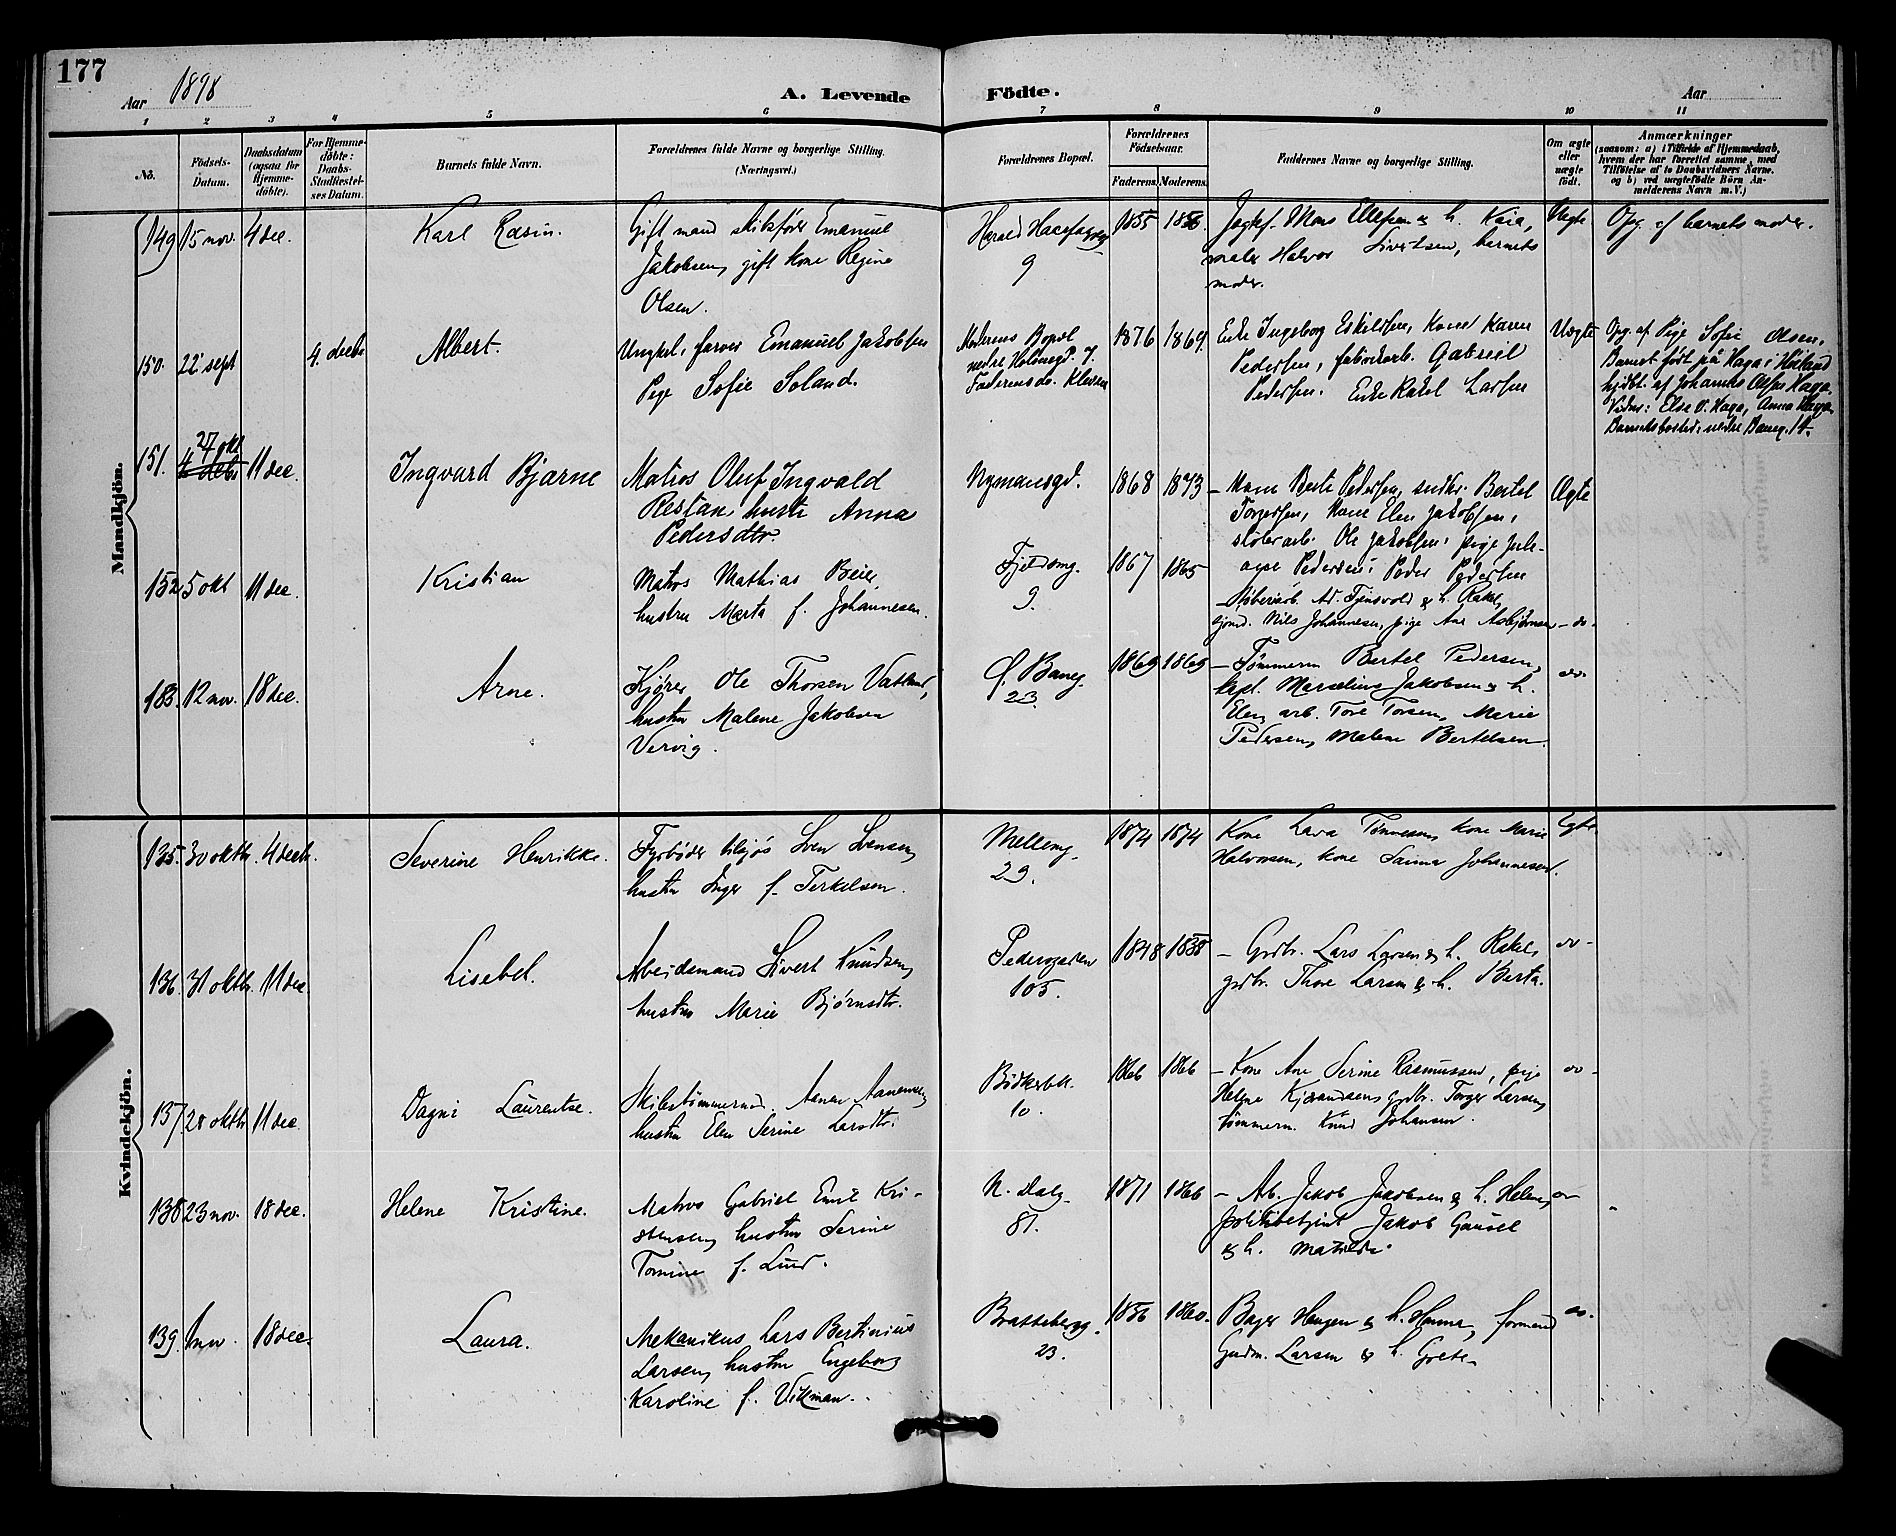 177
Aar 1898
A. Levende Födte.
Aar
1 2 3 4 5 6 7 8 9 10 11
No.
Födsels-
Datum.
Daabsdatum
(ogsaa for
Hjemme-
döbte).
For Hjemme-
döbte:
Daabs-
Stadfæstel-
ses Datum.
Barnets fulde Navn.
Forældrenes fulde Navne og borgerlige Stilling.
(Næringsvei.)
Forældrenes Bopæl.
Forældrenes
Födselsaar.
Faderens.
Moderens.
Faddernes Navne og borgerlige Stilling.
Om ægte
eller
uægte
födt.
Anmærkninger
(saasom: a) i Tilfælde af Hjemmedaab,
hvem der har forrettet samme, med
Tilföielse af to Daabsvidners Navne.
og b) ved uægtefödte Börn An-
melderens Navn m. V.)
Mandkjön.
149 15 nov. 4 dec.
Karl Rasin.
Gift mand skibsfører Emanuel
Jakobsen, gift kone Regine
Olsen.
Harald Haarfagresg
9
1855 1856.
Jagtef. Mons Ellefsen & h. Kaia,
maler Halvor Sivertsen, barnets
moder.
Uægte
Opg. af barnets moder.
150. 22 sept 4. decbr
Albert.
Ungkarl, farver Emanuel Jakobsen
Pige Sofie Soland.
Moderens Bopæl
nedre Holmegd. 7.
Faderens do. Kleven
1876 1869.
Enke Ingeborg Eskildsen, Kone Karen
Pedersen, fabrikarb. Gabriel
Pedersen. Enke Rakel Larsen
Uægte
Opg. af Pige Sofie Olsen.
Barnet født på Haga i Håland
hjdbt. af Johannes Olsen Haga.
Vidner: Else O. Haga, Anna Haga.
Barnets bosted: nedre Baneg. 14.
151. 27 okt 11 dec.
Ingvard Bjarne
Matros Oluf Ingvald
Restan hustr Anna
Pedersdtr.
Nymansgd.
1868 1873
- Kone Berte Pedersen, snedkr. Bertel
Torgersen, Kone Elen Jakobsen,
støberarb. Ole Jakobsen, pige
Pedersen, Peder Pedersen
Ægte
152 5 okt 11 dec.
Kristian
Matros Mathias Beier,
hustru Marta f. Johannesen.
Fjeldsmg.
9.
1867 1865
- Støberiarb. Ad. Tjensvold & h. Rakel,
Nils Johannesen, pige Ane Asbjørnsen
- do -
153. 12 nov. 18 dec.
Arne.
Kjører Ole Thorsen Vatland,
hustru Malene Jakobsen
Vervig.
Ø. Baneg.
23.
1869 1865
- Tømmerm Bertel Pedersen,
kapt. Marselius Jakobsen & h.
Elen, arb. Tore Torsen, Marie
Pedersen, Malene Bertelsen.
do.
Kvindekjön.
135. 30 oktbr. 4 decbr.
Severine Henrikke.
Fyrbøder tilsjøs Sven Svensen,
hustru Inger f. Terkelsen.
Welleng.
29.
1874 1874
Kone Lava Tønnesen, kone Marie
Halvorsen, kone Sanna Johannesen.
Ægte
136. 31 oktbr. 11 dec
Lisebel.
Arbeidsmand Sivert Knudsen,
hustru Marie Bjørnsdtr.
Pedersgaden
105.
1848 1858
- Grdbr. Lars Larsen & h. Rakel,
grdbr. Thore Larsen & h. Berta.
do -
137 28 oktbr 11 dec.
Dagni Laurentse.
Skibstømmermd. Aanen Aanensen,
hustru Elen Serine Larsdtr.
Bødkerbk.
10.
1866 1866
- Kone Ane Serine Rasmussen, pige
Helene Kjøsandsen, grdbr. Torger Larsen,
tømmerm. Knud Johansen.
do -
138 23 nov. 18 dec.
Helene Kristine.
Matros Gabriel Emil Kri-
stensen, hustru Serine
Tomine f. Lund.
N. Dalg.
81.
1871 1866
- Arb. Jakob Jakobsen & h. Helene,
politibetjent Jakob Gausel
& h. Matilde.
do -
139. 1 nov. 18 dec.
Laura.
Mekanikus Lars Bertinius
Larsen, hustru Engeborg
Karoline f. Vikman.
Brattebergg.
23.
1856 1860.
Bager Haugen & h. Hanna, formand
Gudm. Larsen & h. Grete.
do -